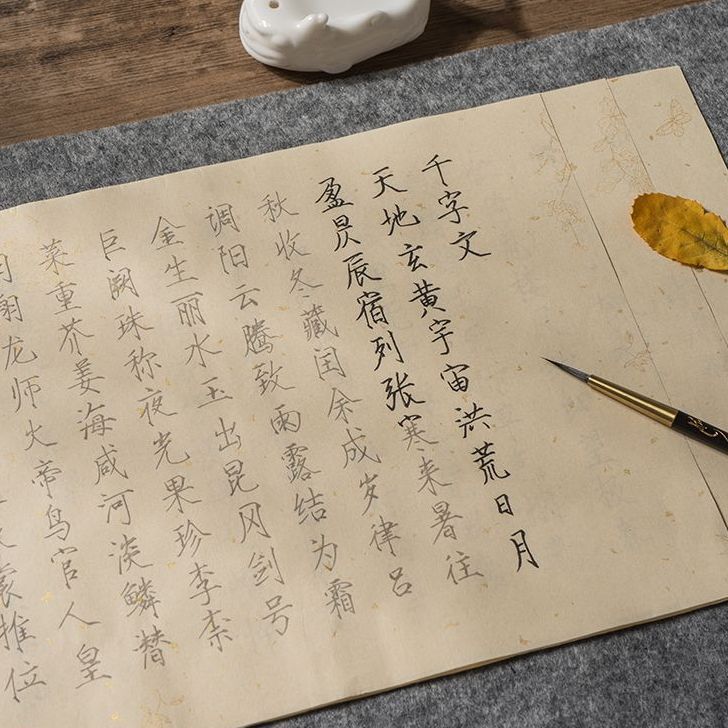 千字文
天地玄黄宇宙洪荒日月
盈昃辰宿列张寒来暑往
秋收冬藏闰余成岁律吕
调阳云腾致雨露结为霜
金生丽水玉出昆冈剑号
巨阙珠称夜光果珍李柰
菜重芥姜海咸河淡鳞潜
翔龙师火帝鸟官人皇
裳推位